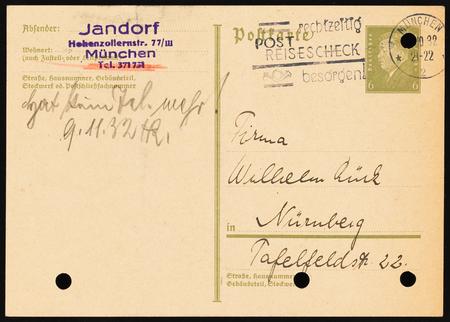 Absender:
Jandorf
Hohenzollernstr. 77/III
München
Tel. 371731
Wohnort:
(auch Zustell- oder
Straße, Hausnummer, Gebäudeteil,
Stockwerk od. Postschließfachnummer
hat kein Tel. mehr
9.11.32
Postkarte
rechtzeitig
POST REISESCHECK
besorgen!
MÜNCHEN
32
21-22
2
6 6
Firma
Wilhelm Rück
in Nürnberg
Tafelfeldstr. 22.
Straße, Hausnummer
Gebäudeteil, Stockwerk